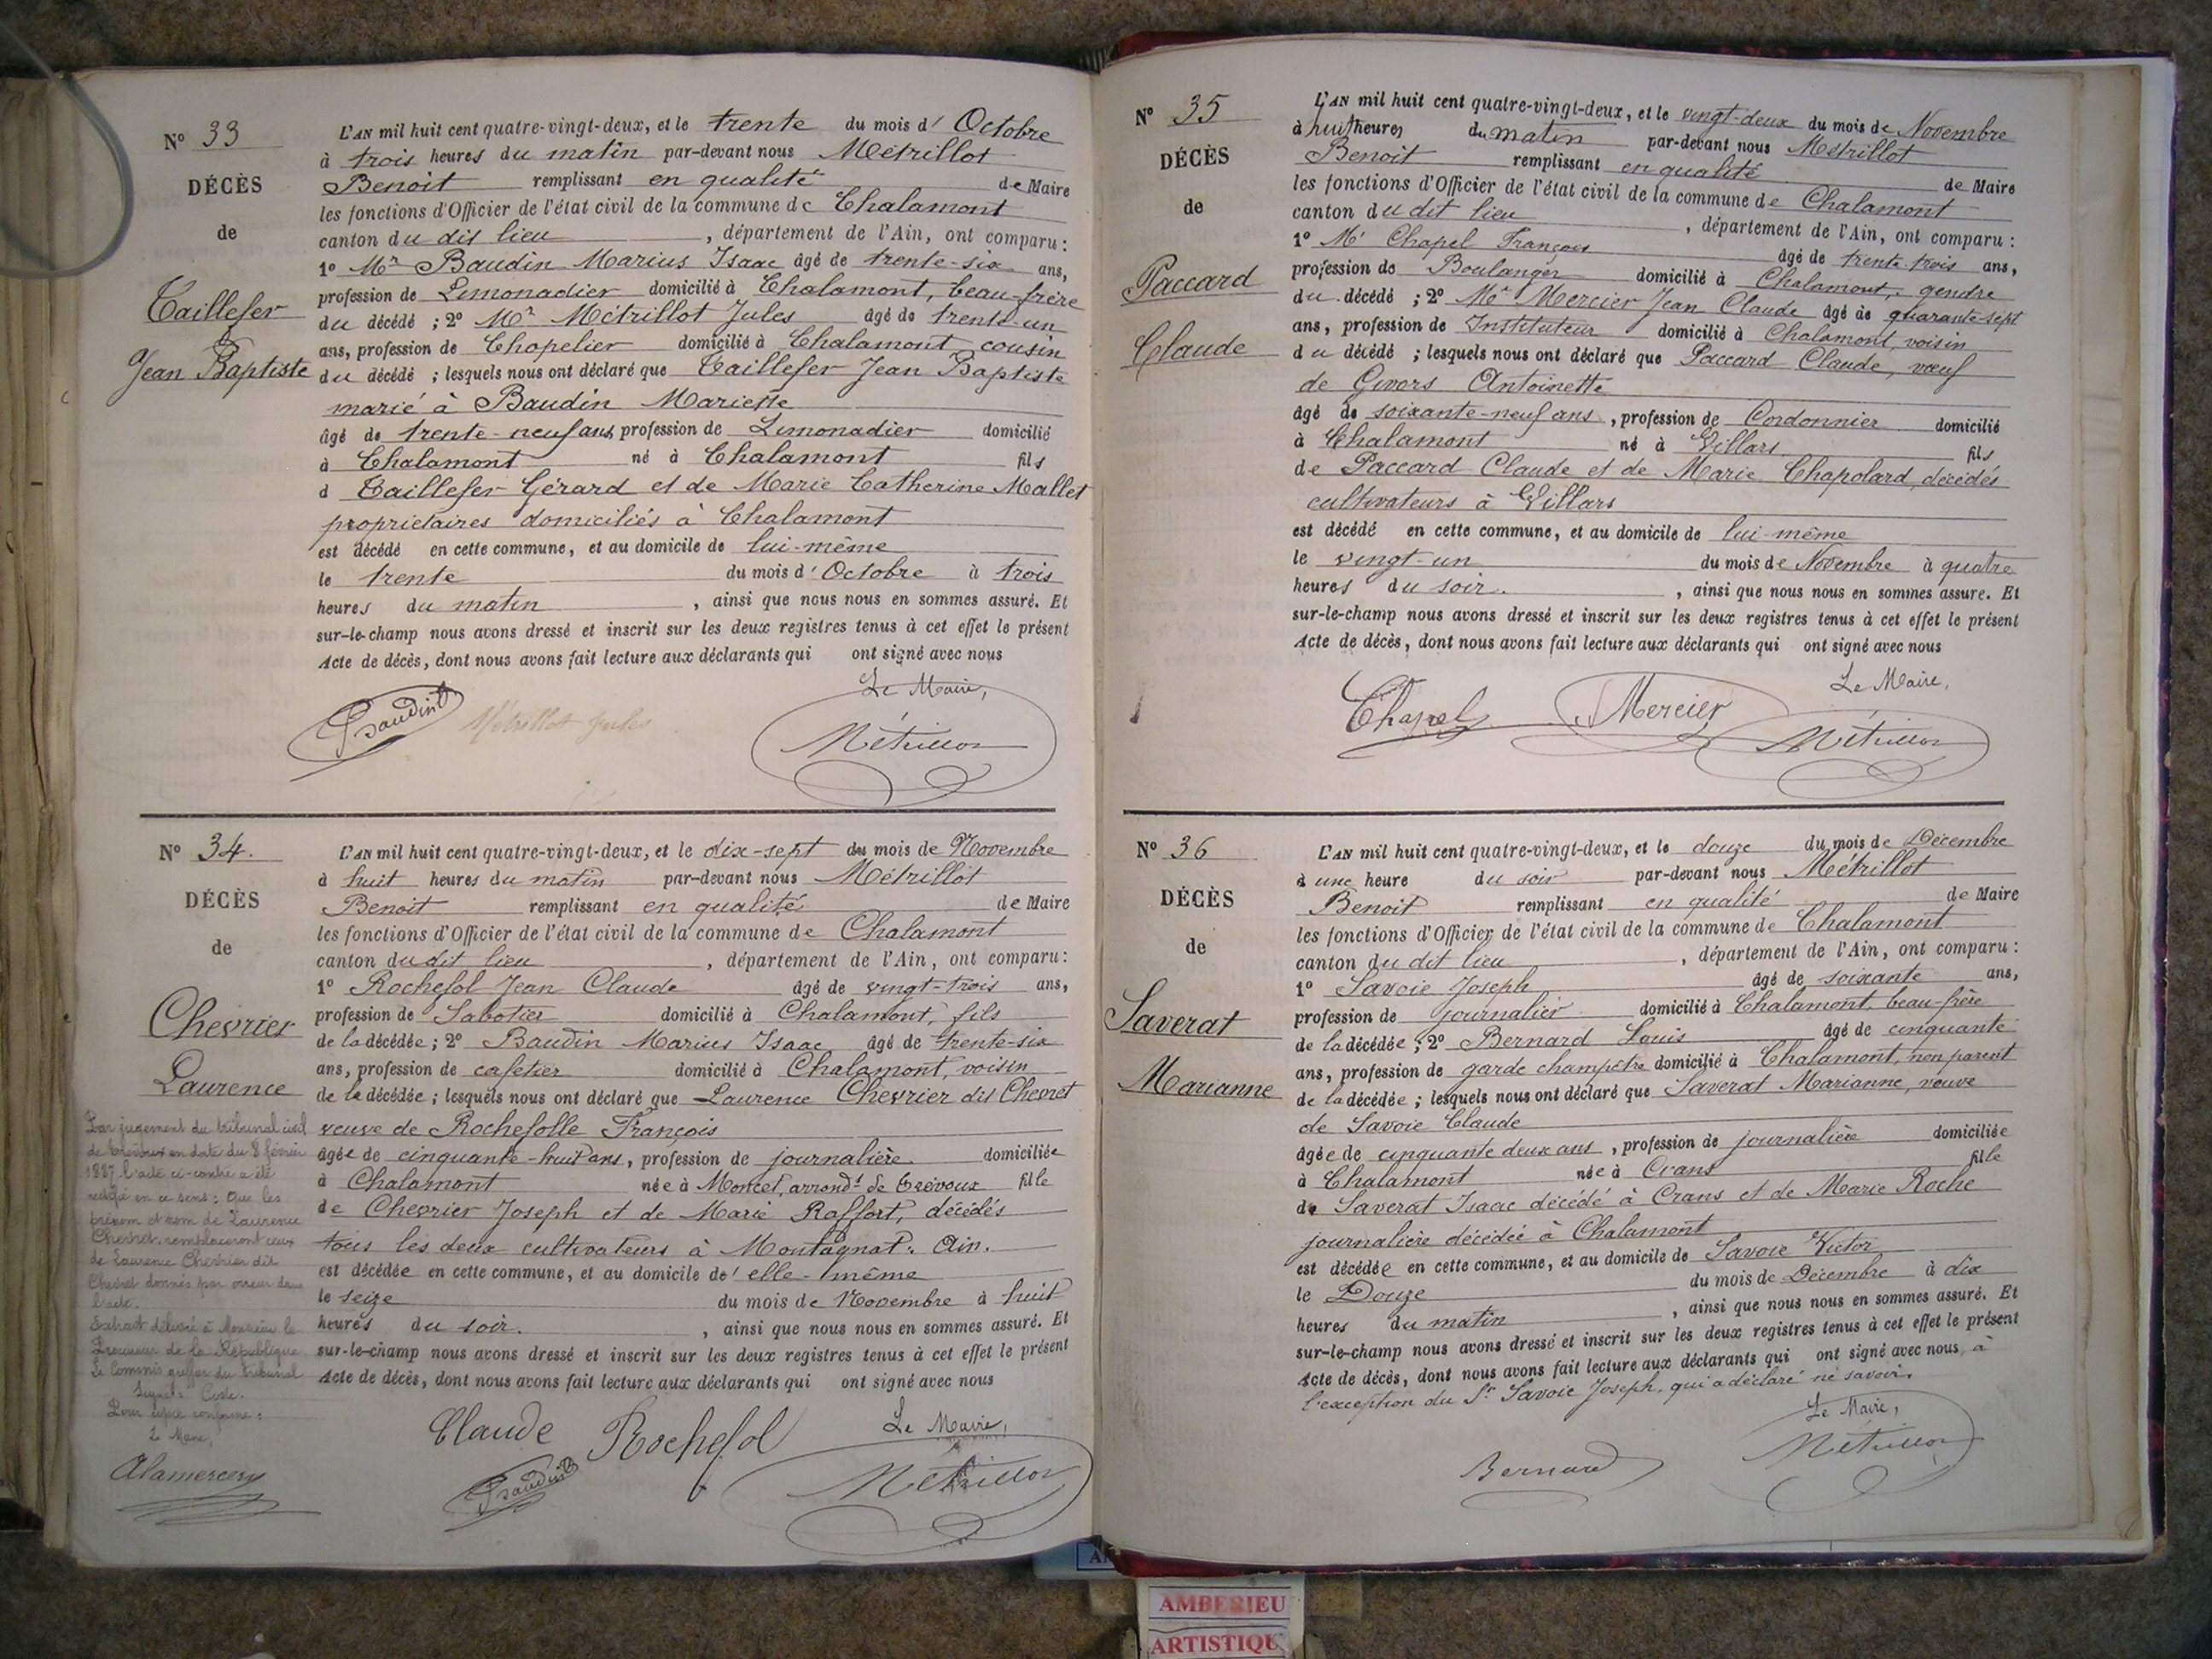 N° 33
DÉCÈS
de
Taillefer
Jean Baptiste
L'AN mil huit cent quatre-vingt-deux, et le trente du mois d' Octobre
à trois heures du matin par-devant nous Métrillot
Benoit remplissant en qualité de Maire
les fonctions d'Officier de l'état civil de la commune de Chalamont
canton du dit lieu, département de l'Ain, ont comparu :
1° Mr Baudin Marius Isaac âgé de trente-six ans,
profession de Limonadier domicilié à Chalamont, beau-frère
du décédé ; 2° Mr Métrillot Jules âgé de trente-un
ans, profession de Chapelier domicilié à Chalamont cousin
du décédé ; lesquels nous ont déclaré que Taillefer Jean Baptiste
marié à Baudin Mariette
âgé de trente-neuf ans profession de Limonadier domicilié
à Chalamont né à Chalamont fils
d Taillefer Gérard et de Marie Catherine Mallet
propriétaires domiciliés à Chalamont
est décédé en cette commune, et au domicile de lui-même
le trente du mois d' Octobre à trois
heures du matin, ainsi que nous nous en sommes assuré. Et
sur-le-champ nous avons dressé et inscrit sur les deux registres tenus à cet effet le présent
Acte de décès, dont nous avons fait lecture aux déclarants qui ont signé avec nous
Le Maire,
Baudin Métrillot Jules Métrillot
N° 34.
DÉCÈS
de
Chevrier
Laurence
L'AN mil huit cent quatre-vingt-deux, et le dix-sept du mois de Novembre
à huit heures du matin par-devant nous Métrillot
Benoit remplissant en qualité de Maire
les fonctions d'Officier de l'état civil de la commune de Chalamont
canton du dit lieu, département de l'Ain, ont comparu :
1° Rochefol Jean Claude âgé de vingt-trois ans,
profession de Sabotier domicilié à Chalamont, fils
de la décédée ; 2° Baudin Marius Isaac âgé de trente-six
ans, profession de cafetier domicilié à Chalamont, voisin
de la décédée ; lesquels nous ont déclaré que Laurence Chevrier dit Chevret
veuve de Rochefolle François
âgée de cinquante-huit ans, profession de journalière domiciliée
à Chalamont née à Moncet, arrondt de Trévoux fille
de Chevrier Joseph et de Marie Raffort, décédés
tous les deux cultivateurs à Montagnat. Ain.
est décédée en cette commune, et au domicile de elle-même
le seize du mois de Novembre à huit
heures du soir., ainsi que nous nous en sommes assuré. Et
sur-le-champ nous avons dressé et inscrit sur les deux registres tenus à cet effet le présent
Acte de décès, dont nous avons fait lecture aux déclarants qui ont signé avec nous
Le Maire,
Claude Rochefol
Baudin Métrillot
Par jugement du tribunal civil
de Trévoux en date du 8 février
1887 l'acte ci-contre a été
rectifié en ce sens : Que les
prénom et nom de Laurence
Chevret, remplaceront ceux
de Laurence Chevrier dit
Chevret donnés par erreur dans
l'acte.
Extrait délivré à Monsieur le
Procureur de la République
Le Commis greffier du tribunal
Signé :
Pour copie conforme :
Le Maire,
Alamercery
N° 35
DÉCÈS
de
Paccard
Claude
L'AN mil huit cent quatre-vingt-deux, et le vingt-deux du mois de Novembre
à huit heures du matin par-devant nous Métrillot
Benoit remplissant en qualité de Maire
les fonctions d'Officier de l'état civil de la commune de Chalamont
canton du dit lieu, département de l'Ain, ont comparu :
1° Mr Chapel François âgé de trente trois ans,
profession de Boulanger domicilié à Chalamont, gendre
du décédé ; 2° Mr Mercier Jean Claude âgé de quarante-sept
ans, profession de Instituteur domicilié à Chalamont, voisin
du décédé ; lesquels nous ont déclaré que Paccard Claude, vœuf
de Givors Antoinette
âgé de soixante-neuf ans, profession de Cordonnier domicilié
à Chalamont né à Villars fils
de Paccard Claude et de Marie Chapolard, décédés
cultivateurs à Villars
est décédé en cette commune, et au domicile de lui-même
le vingt-un du mois de Novembre à quatre
heures du soir., ainsi que nous nous en sommes assure. Et
sur-le-champ nous avons dressé et inscrit sur les deux registres tenus à cet effet le présent
Acte de décès, dont nous avons fait lecture aux déclarants qui ont signé avec nous
Le Maire,
Chapel Mercier Métrillot
N° 36
DÉCÈS
de
Saverat
Marianne
L'AN mil huit cent quatre-vingt-deux, et le douze du mois de Décembre
à une heure du soir par-devant nous Métrillot
Benoit remplissant en qualité de Maire
les fonctions d'Officier de l'état civil de la commune de Chalamont
canton du dit lieu, département de l'Ain, ont comparu :
1° Savoie Joseph âgé de soixante ans,
profession de journalier domicilié à Chalamont, beau-frère
de la décédée ; 2° Bernard Louis âgé de cinquante
ans, profession de garde champêtre domicilié à Chalamont, non parent
de la décédée ; lesquels nous ont déclaré que Saverat Marianne, veuve
de Savoie Claude
âgée de cinquante deux ans, profession de journalière domiciliée
à Chalamont née à Crans fille
de Saverat Isaac décédé à Crans et de Marie Roche
journalière décédée à Chalamont
est décédée en cette commune, et au domicile de Savoie Victor
le Douze du mois de Décembre à dix
heures du matin, ainsi que nous nous en sommes assuré. Et
sur-le-champ nous avons dressé et inscrit sur les deux registres tenus à cet effet le présent
Acte de décès, dont nous avons fait lecture aux déclarants qui ont signé avec nous, à
l'exception du Sr Savoie Joseph, qui a déclaré ne savoir.
Le Maire,
Bernard Métrillot
AMBERIEU
ARTISTIQU